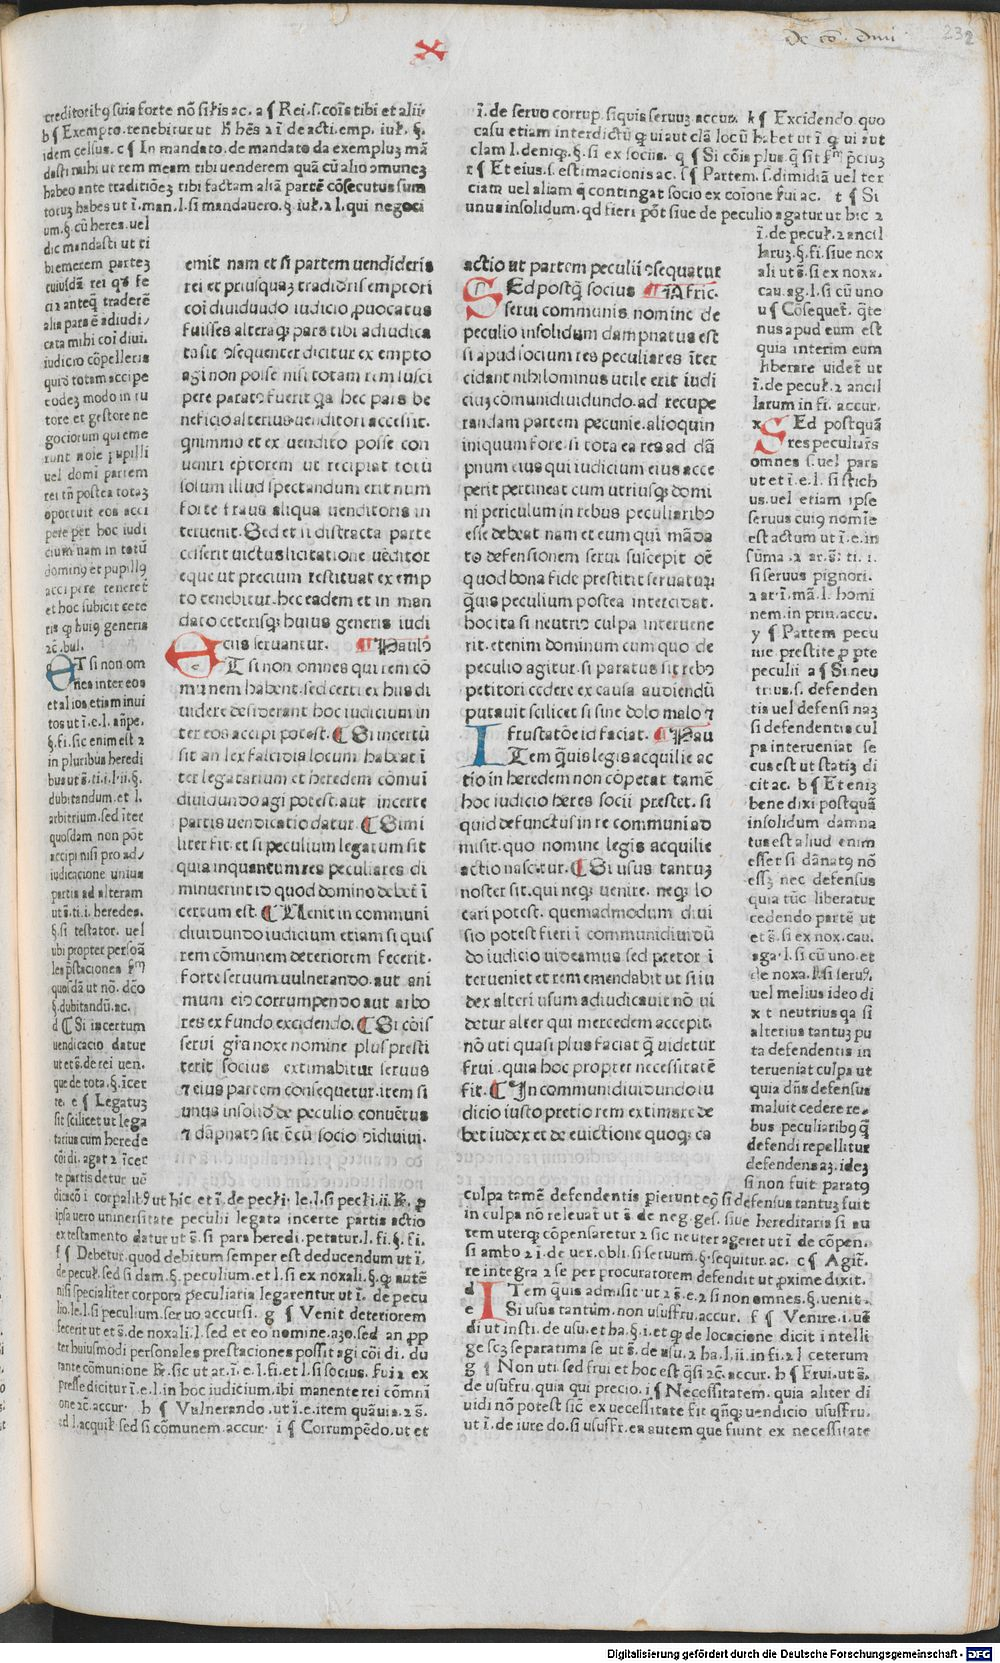 De cō. diui
232
X
creditoribꝯ suis forte nō sil'is ac. a ¶ Rei. s. cōis tibi et alii·
b ¶ Exempto. tenebitur ut ħ hēs ⁊ ī de acti. emp. iuł. §.
idem celsus. c ¶ In mandato. de mandato da exempluꝫ mā
dasti mihi ut rem meam tibi uenderem quā cū alio ↄmuneꝫ
habeo ante traditiōeꝫ tibi factam aliā partē cōsecutus sum
totuꝫ habes ut ī. man. l. si mandauero. §. iuł. ⁊ l. qui negoci
um. §. cū heres. uel
dic mandasti ut ti
bi emerem parteꝫ
cuiusdā rei qꝫ fe
ci ⁊ anteꝗ traderē
alia pars ē adiudi/
cata mihi coi diui.
iudicio cōpelleris
quid totam accipe
eodeꝫ modo in tu
tore et gestore ne
gociorum qui eme
runt noīe pupilli
uel domī partem
rei tñ postea totaꝫ
oportuit eos acci
pere per hoc iudi
cium nam in totū
dominꝯ et pupillꝯ
accipere teneret̄
et hoc subicit cete
ris ꝙ huiꝯ generis
⁊c̄. bul.
ET si non om
nes inter eos
et alios etiam inui
tos ut ī. e. l. añpe.
§. fi. sic enim est ⁊
in pluribus heredi
bus ut s̄. ti. i. l. ii. §.
dubitandum. et l.
arbitrium. sed ītee
quosdam non pōt
accipi nisi pro ad/
iudicatione unius
partis ad alteram
ut s̄. ti. i. heredes.
§. si testator. uel
ubi propter persoā
les p̄stacionea
quosdā ut nō. dc̄o
§. dubitandū. ac.
d ¶ Si incertum
uendicacio datur
ut et s̄. de rei uen.
que de tota. §. īcer
te. e ¶ Legatuꝫ
sit scilicet ut lega
tarius cum herede
cōi di. agat ⁊ īcer
te partis detur uē
dicacō ī corpalibꝯ ut hic et ī. de pecłi. le. l. si pecłi. ii. R̄. ꝓ
ipsa uero uniuersitate peculii legata incerte partis actio
ex testamento datur ut s̄. si pars heredi. petatur. l. fi. §. fi.
f ¶ Debetur. quod debitum semper est deducendum ut ī.
de pecuł. sed si dam. §. peculium. et l. si ex noxali. §. ꝗ. autē
nisi specialiter corpora peculiaria legarentur ut ī. de pecu
lio. le. l. si peculium. seruo accursi. g ¶ Venit deteriorem
fecerit ut et s̄. de noxali. l. sed et eo nomine. aꝫo. sed an ꝓp
ter huiusmodi personales prestaciones possit agi cōi di. du
rante cōmunione R̄. sic ut ar. ī. e. l. fi. et l. si socius. fui ⁊ ex
presse dicitur ī. e. l. in hoc iudicium. ibi manente rei cōmni
one ⁊c̄. accur. h ¶ Vulnerando. ut ī. e. item quāuis. ⁊ s̄.
ad l. acquił. sed si cōmunem. accur. i ¶ Corrumpēdo. ut et
emit nam et si partem uendideris
rei et priusquaꝫ tradidris emptori
coi diuiduudo iudicio ꝓuocatus
fuisses alteraqꝫ pars tibi adiudica
ta sit ↄsequenter dicitur ex empto
agi non posse nisi totam rem susci
pere paratꝯ fuerit ꝗa hec pars be
neficio alterius uenditori accessit.
qnimmo et ex uendito posse con
ueniri eptorem ut recipiat totū
solum illud spectandum erit num
forte fraus aliqua uenditoris in
teruenit. Sed et si distracta parte
cesserit uictus licitatione uēditor
eque ut precium restituat ex emp
to tenebitur. hec eadem et in man
dato ceterisqꝫ huius generis iudi
ciis seruantur. ¶ Paulꝯ
ET si non omnes qui rem cō
munem habent. sed certi ex his di
uidere desiderant hoc iudicium in
ter eos accipi potest. ¶ Si incertū
sit an lex falcidis locum habeat ī
ter legatarium et heredem cōmūi
diuidundo agi potest. aut incerte
partis uendicatio datur. ¶ Simi
liter fit. et si peculium legatum sit
quia inquantum res peculiares di
minuerint id quod domino debet̄ ī
certum est. ¶ Uenit in communi
diuidundo iudicium etiam si quis
rem cōmunem deteriorem fecerit.
forte seruum uulnerando. aut ani
mum eiꝯ corrumpendo aut arbo
res ex fundo excidendo. ¶ Si cōis
serui gr̄a noxe nomine plus presti
terit socius extimabitur seruus
⁊ eius partem consequetur. item si
unus insolidꝰ de peculio conuētus
⁊ dāpnatꝯ sit ē cū socio ↄi diuiui.
ī. de seruo corrup. si quis seruuꝫ. accur. k ¶ Excidendo quo
casu etiam interdictū ꝗ ui aut clā locū habet ut ī. ꝙ ui aut
clam l. deniqꝫ. §. si ex sociis. q ¶ Si cōis plus. ꝗ sit p̄ciuꝫ
r ¶ Et eius. s. estimacionis ac. s ¶ Partem. s. dimidiā uel ter
ciam uel aliam ꝗ contingat socio ex coīone s̄ui ac. t ¶ Si
unus insolidum. qd fieri pōt siue de peculio agatur ut hic ⁊
ī. de pecuł. ⁊ ancil
laruꝫ. §. fi. siue nox
ali ut s̄. si ex noxa.
cau. ag. l. si cū uno
u ¶ Cōsequet̄. ꝗte
nus apud eum est
quia interim eum
liberare uidet̄ ut
ī. de pecuł. ⁊ ancil
larum in fi. accur.
x SEd postquā
res peculiar̄s
omnes s. uel pars
ut et ī. e. l. si stich
us. uel etiam ipse
seruus cuiꝯ nomīe
est actum ut ī. e. in
sūma. ⁊ ar. s̄. ti. i.
si seruus pignori.
⁊ ar ī. mā. l. homi
nem. in prin. accu.
y ¶ Partem pecu
nie. prestite ꝓ pte
peculii a ¶ Si neu
trius. s. defenden
tis uel defensi naꝫ
si defendentis cul
pa interueniat se
cus est ut statiꝫ di
cit ac. b ¶ Et eniꝫ
bene dixi postquā
insolidum damna
tus est aliud enim
esset si dānatꝯ nō
esseꝫ nec defensus
quia tūc liberatur
cedendo partē ut
et s̄. si ex nox. cau.
aga. l. si cū uno. et
de noxa. l. si seruꝯ.
uel melius ideo di
x t neutrius qa si
alterius tantuꝫ pu
ta defendentis in
terueniat culpa ut
quia dñs defensus
maluit cedere re⸗
bus peculiaribꝯ ꝗ
defendi repellitur
defendens aꝫ. ideꝫ
si non fuit paratꝯ
culpa tamē defendentis pierunt eꝯ si defensus tantuꝫ fuit
in culpa nō releuat̄ ut s̄. de neg. ges. siue hereditaria si au
tem uterqꝫ cōpensaretur ⁊ sic neuter ageret ut ī. de cōpen.
si ambo ⁊ ī. de uer. obli. si seruum. §. sequitur. ac. c ¶ Agit̄.
re integra ⁊ se per procuratorem defendit ut ꝓxime dixit.
d ITem quis admisit. ut ⁊ s̄. e. ⁊ si non omnes. §. uenit.
e Si usus tantum. non ususfru. accur. f ¶ Venire. i. uē
di ut insti. de usu. et ha. §. i. et ꝙ de locacione dicit intelli
ge scꝫ separatim a se ut s̄. de usu. ⁊ ha. l. ii. in fi. ⁊ l ceterum
g ¶ Non uti. sed frui et hoc est ꝗsi ⁊c̄. accur. h ¶ Frui. ut s̄.
de usufru. quia qui precio. i ¶ Necessitatem. quia aliter di
uidi nō potest sic̄ ex necessitate fit qñqꝫ uendicio ususfru.
ut ī. de iure do. si ususfr. ea autem que fiunt ex necessitate
actio ut partem peculii ↄsequatur
SEd postꝗ socius ¶ iAfric.
serui communis nomine de
peculio insolidum dampnatus est
si apud socium res peculiares īter
cidant nihilominus utile erit iudi
ciuꝫ cōmunidiuidundo. ad recupe
randam partem pecunie. alioquin
iniquum fore. si tota ea res ad dā
pnum eius qui iudicium eius acce
perit pertineat cum utriusqꝫ domi
ni periculum in rebus peculiaribꝯ
esse debeat nam et eum qui māda
to defensionem serui suscepit oē
quod bona fide prestitit seruatur
ꝗuis peculium postea intercidat.
hoc ita si neutriꝯ culpa interuene
rit. etenim dominum cum quo de
peculio agitur. si paratus sit rebꝯ
petitori cedere ex causa audiendū
putauit scilicet si sine dolo malo ⁊
frustatōe id faciat. ¶ Pau
ITem ꝗuis legis acquilie ac
tio in heredem non cōpetat tamē
hoc iudicio heres socii prestet. si
quid defunctus in re communi ad
misit. quo nomine legis acquilie
actio nascitur. ¶ Si usus tantuꝫ
noster sit. qui neqꝫ uenire. neqꝫ lo
cari potest. quemadmodum diui
sio potest fieri ī communidiuidū
do iudicio uideamus sed pretor ī
terueniet et rem emendabit ut si iu
dex alteri usum adiudicauit nō ui
detur alter qui mercedem accepit.
nō uti quasi plus faciat ꝗ uidetur
frui. quia hoc propter necessitatē
fit. ¶ In communidiuidundo iu
dicio iusto pretio rem extimare de
bet iudex et de euictione quoqꝫ ca
Digitalisierung gefördert durch die Deutsche Forschungsgemeinschaft - DFG